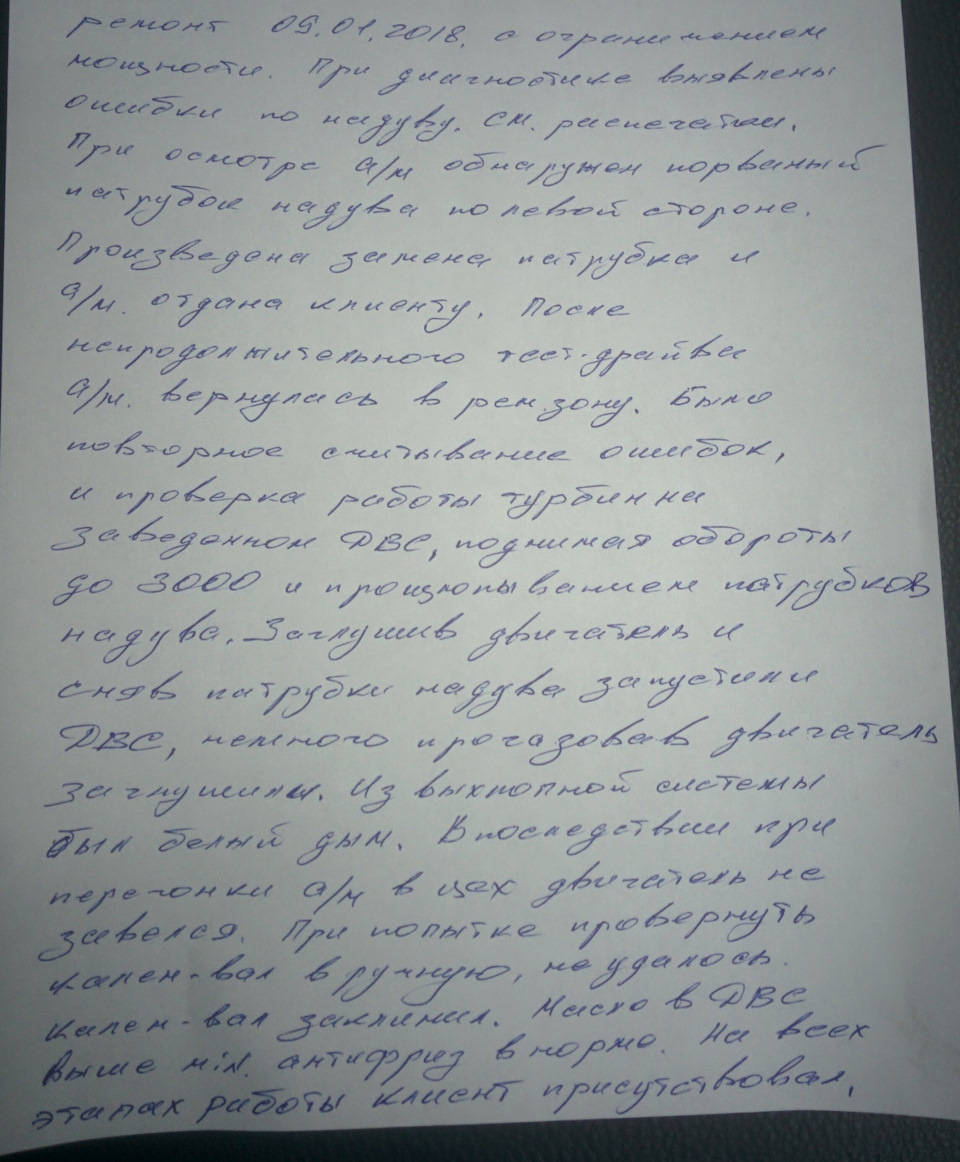 ремонт 09.01.2018. с ограничением
мощности. При диагностике выявлены
ошибки по надуву. см. распечатки.
При осмотре а/м обнаружен порваный
патрубок надува по левой стороне.
Произведена замена патрубка и
а/м. отдана клиенту. После
непродолжительного тест-драйва
а/м. вернулась в рем.зону. Было
повторное считывание ошибок,
и проверка работы турбин на
заведенном ДВС, поднимая обороты
до 3000 и прощюпыванием патрубков
надува. Заглушив двигатель и
сняв патрубки надува запустили
ДВС, немного прогазовав двигатель
заглушили. Из выхлопной системы
был белый дым. Впоследствии при
перегонки а/м в цех двигатель не
завелся. При попытке провернуть
кален-вал в ручную, не удалось.
кален-вал заклинил. Масло в ДВС
выше min. антифриз в норме. На всех
этапах работы клиент присутствовал.